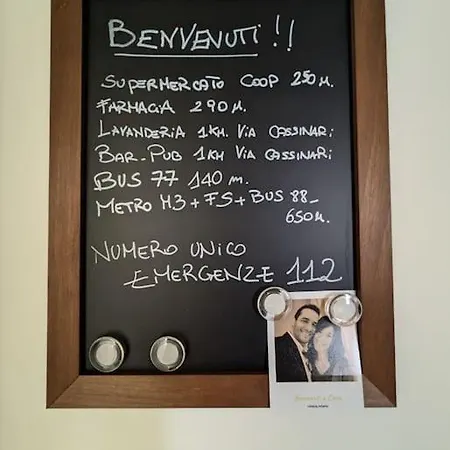 BENVENUTI!!
SUPERMERCATO COOP 250 M.
FARMACIA 290 M.
LAVANDERIA 1KM. VIA CASSINARI
BAR-PUB 1KM VIA CASSINARI
BUS 77 140 m.
METRO M3+FS+BUS 88-
650 M.
NUMERO UNICO
EMERGENZE 112